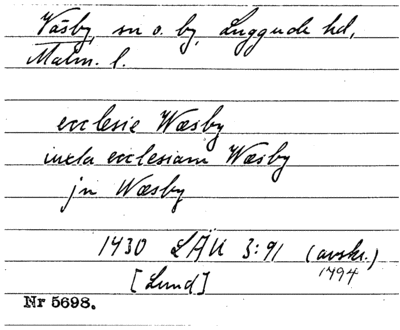 Väsby, sn o. by, Luggude hd,
Malm. l.
ecclesie Wæsby
iuxta ecclesiam Wæsby
jn Wæsby
1430 LÄU 3:91 (avskr.)
1494
[Lund]
Nr 5698.